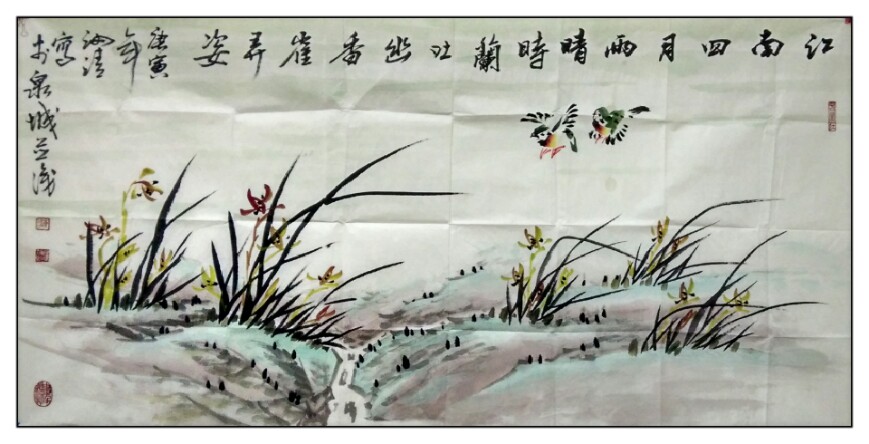 江南四月雨晴時蘭吐幽香雀弄姿
庚寅
年
寫
于泉城